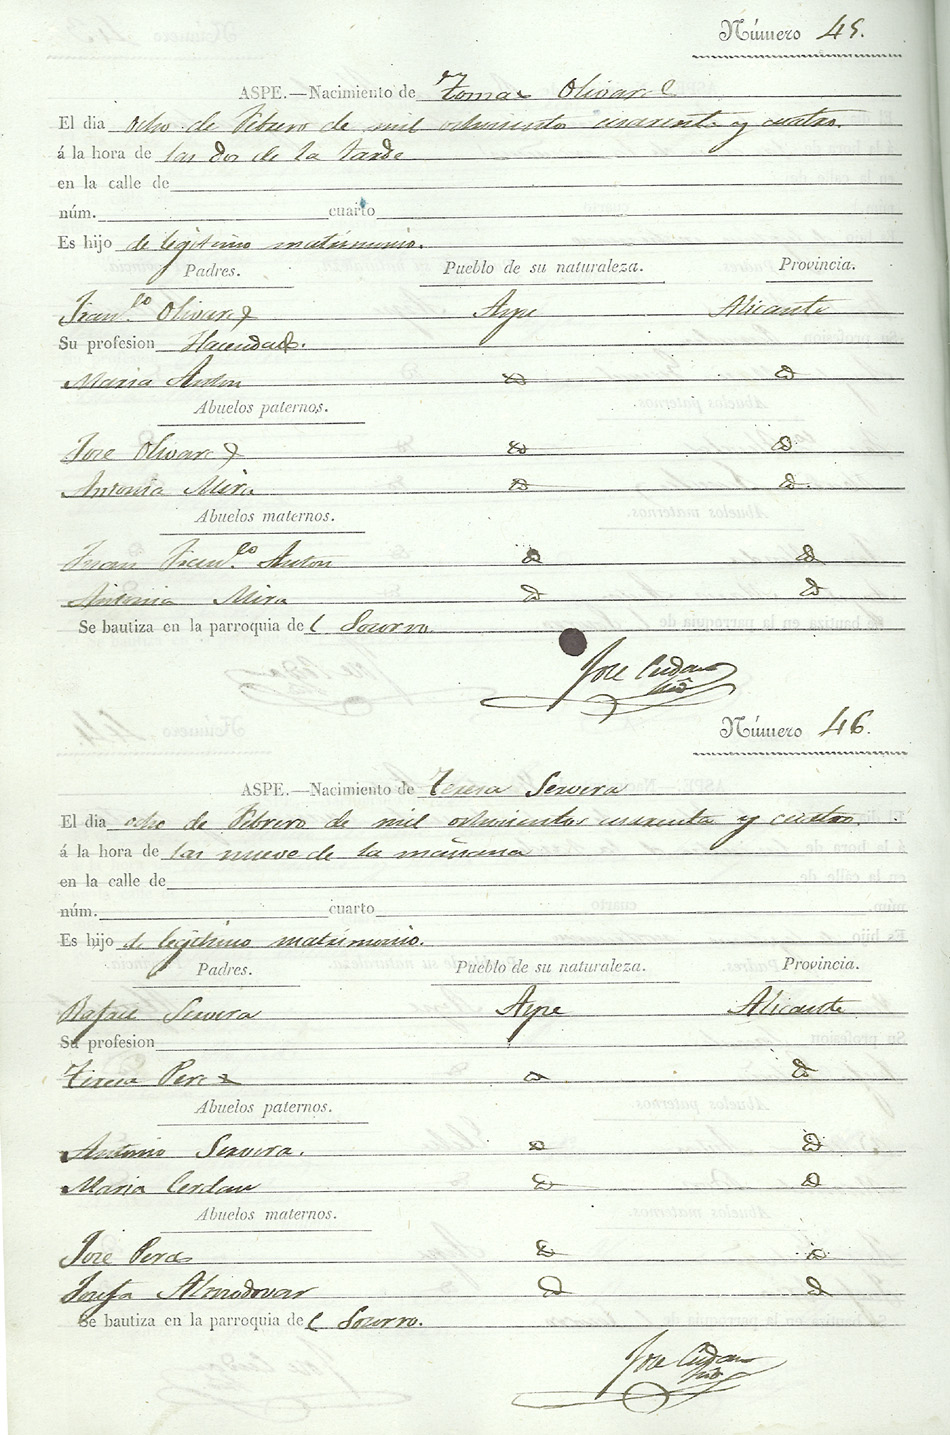 Número 45.
ASPE.—Nacimiento de Tomas Olivares
El dia ocho de Febrero de mil ochocientos cuarenta y cuatro.
á la hora de las dos de la tarde
en la calle de
núm. cuarto
Es hijo de legitimo matrimonio.
Padres. Pueblo de su naturaleza. Provincia.
Fran.co Olivares Aspe Alicante
Su profesion Hacendado.
Maria Anton
Abuelos paternos.
Jose Olivares
Antonia Mira
Abuelos maternos.
Juan Fran.co Anton
Antonia Mira
Se bautiza en la parroquia del Socorro.
Jose
Número 46.
ASPE.—Nacimiento de Teresa Servera
El dia ocho de Febrero de mil ochocientos cuarenta y cuatro.
á la hora de las nueve de la mañana
en la calle de
núm. cuarto
Es hijo de legitimo matrimonio.
Padres. Pueblo de su naturaleza. Provincia.
Rafael Servera Aspe Alicante
Su profesion
Teresa Perez
Abuelos paternos.
Antonio Servera.
Maria Cerdan
Abuelos maternos.
Jose Perez
Josefa Almodovar
Se bautiza en la parroquia del Socorro.
Jose